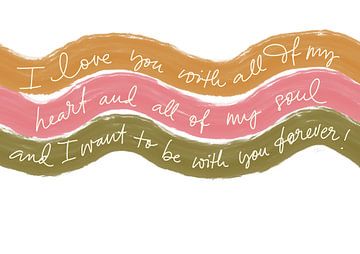 I love you with all of my
heart and all of my soul
and I want to be with you forever!